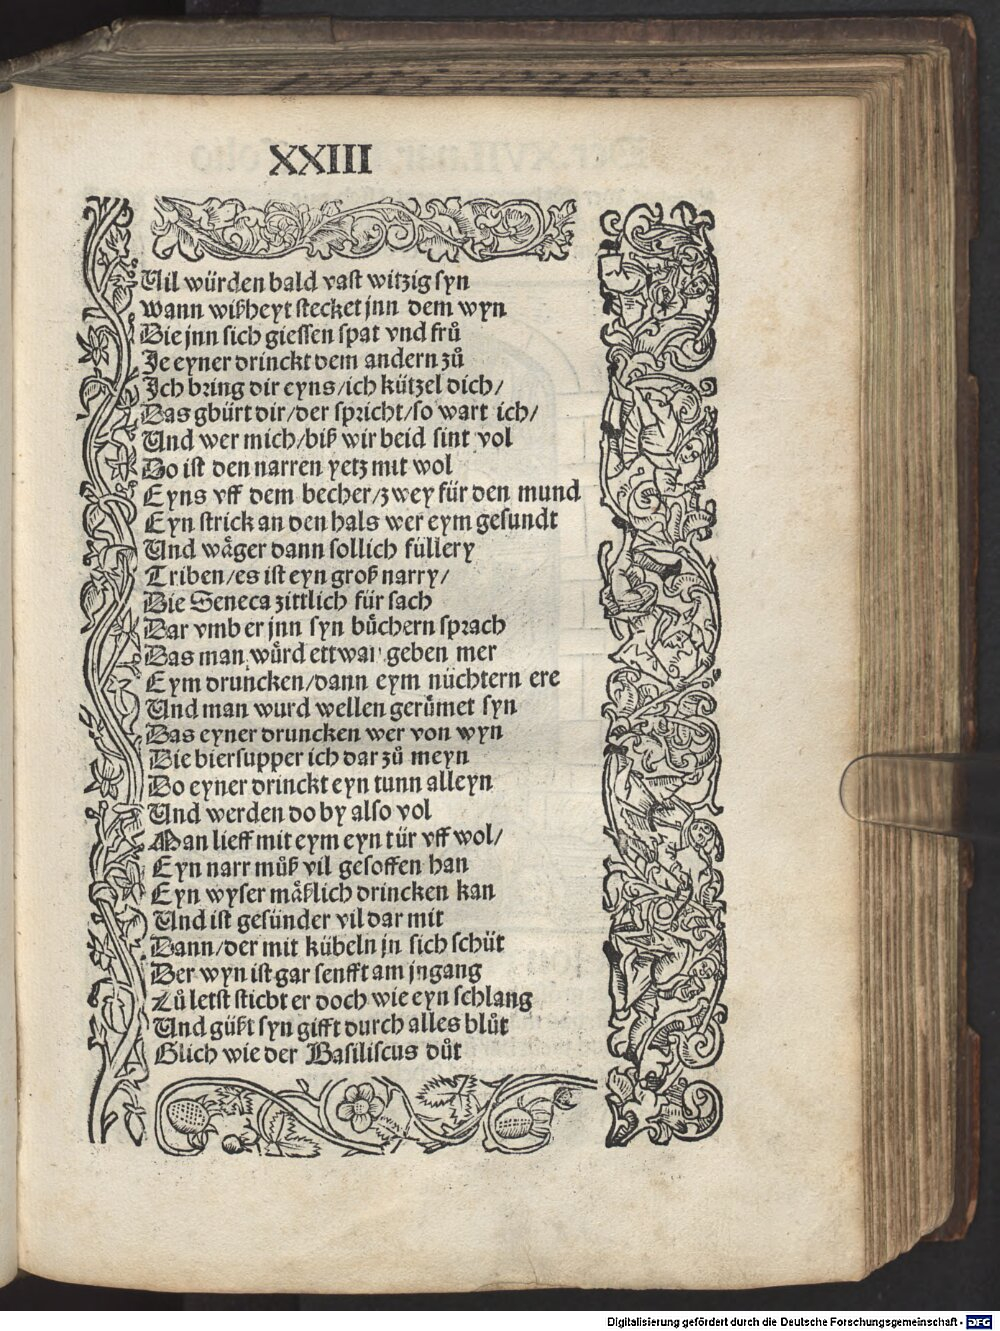 XXIII
Vil würden bald vast witzig syn
Wann wißheyt stecket jnn dem wyn
Die jnn sich giessen spat vnd frů
Je eyner drinckt dem andern zů
Jch bring dir eyns/ich kützel dich/
Das gbürt dir/der spricht/so wart ich/
Vnd wer mich/biß wir beid sint vol
Do ist den narren yetz mit wol
Eyns vff dem becher/zwey für den mund
Eyn strick an den hals wer eym gesundt
Vnd wäger dann sollich füllery
Triben/es ist eyn groß narry/
Die Seneca zittlich für sach
Dar vmb er jnn syn büchern sprach
Das man würd ettwan geben mer
Eym druncken/dann eym nüchtern ere
Vnd man wurd wellen gerümet syn
Das eyner druncken wer von wyn
Die biersupper ich dar zů meyn
Do eyner drinckt eyn tunn alleyn
Vnd werden do by also vol
Man lieff mit eym eyn tür vff wol/
Eyn narr můß vil gesoffen han
Eyn wyser mäßlich drincken kan
Vnd ist gesünder vil dar mit
Dann/der mit kübeln jn sich schüt
Der wyn ist gar senfft am jngang
Zů letst sticht er doch wie eyn schlang
Vnd güßt syn gifft durch alles blůt
Glich wie der Basiliscus důt
Digitalisierung gefördert durch die Deutsche Forschungsgemeinschaft - DFG